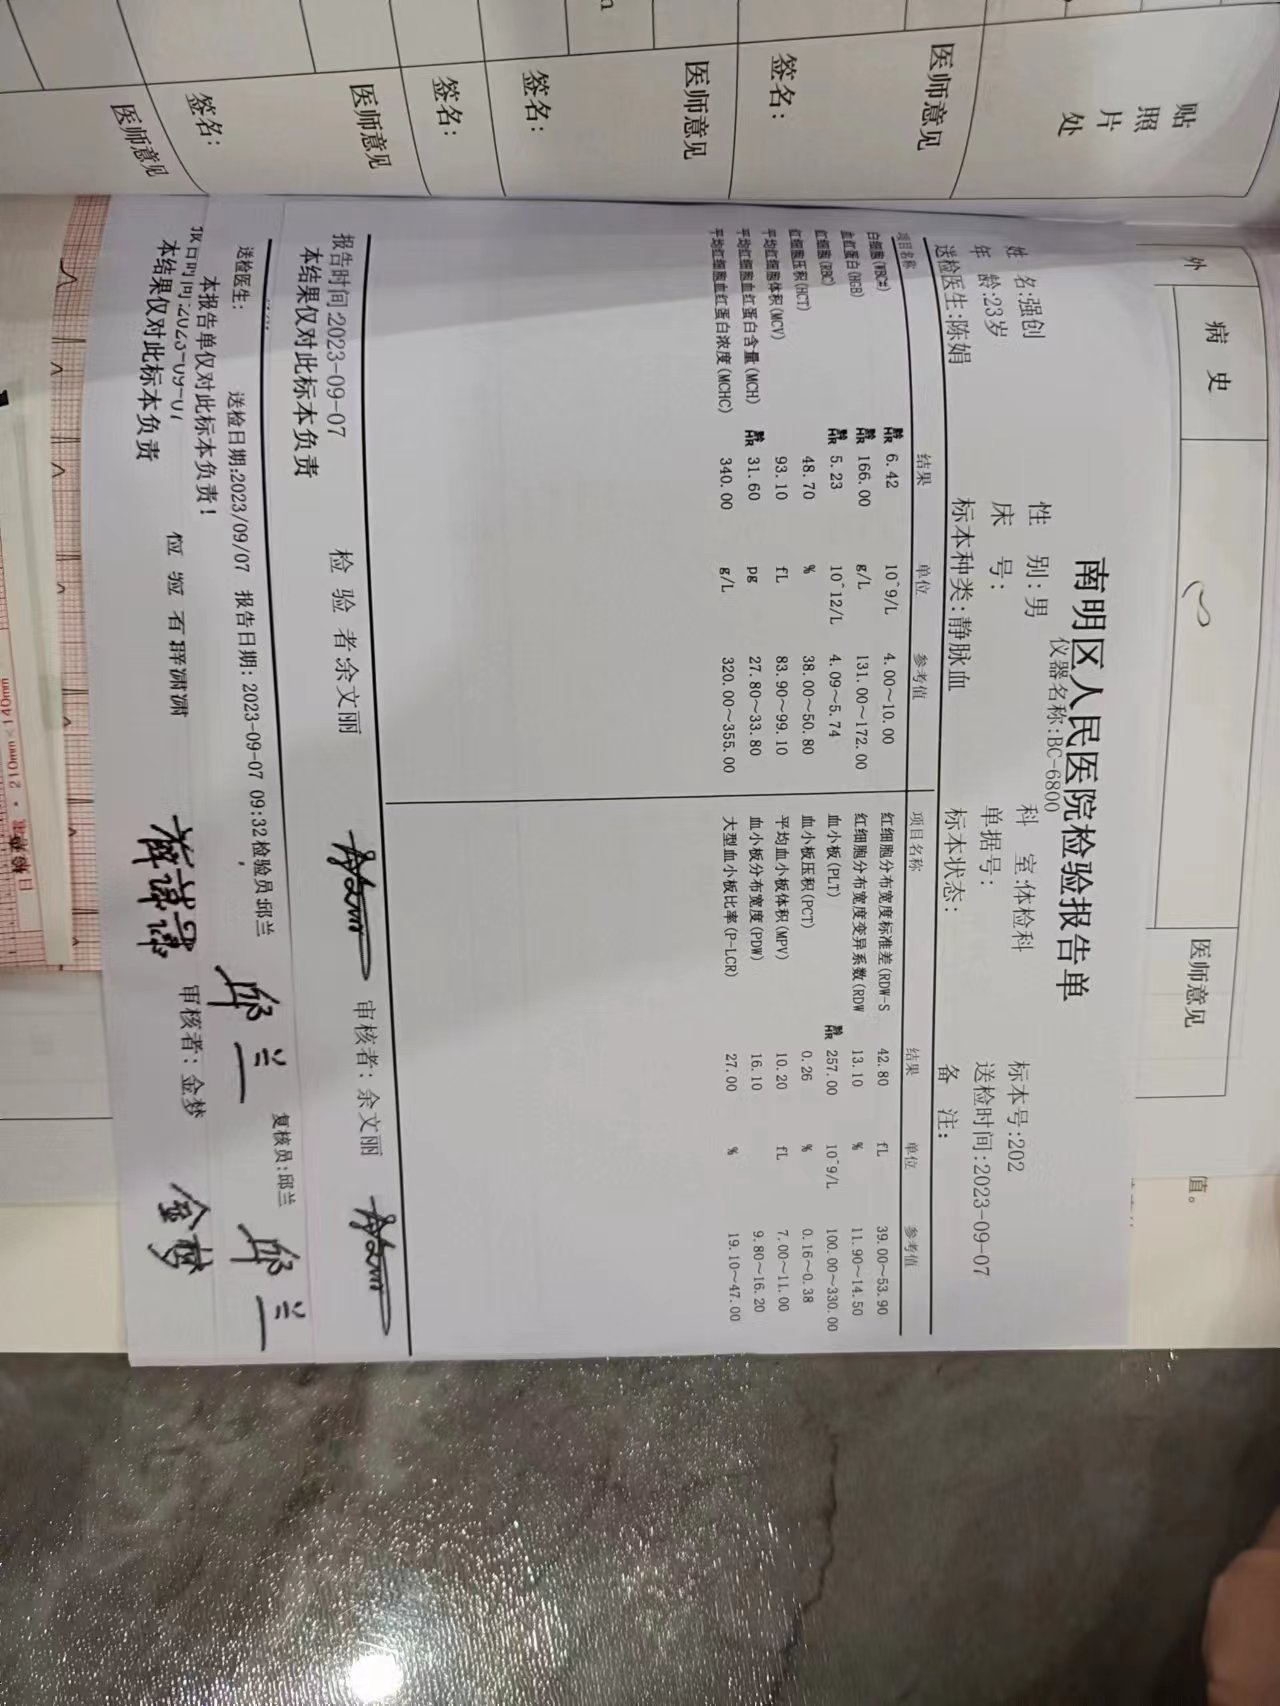 贴
照
片
处
医师意见
签名：
医师意见
签名：
签名：
医师意见
签名：
医师意见
外
病 史
医师意见
值。
南明区人民医院检验报告单
仪器名称:BC-6800
姓 名:强创 性 别:男 科 室:体检科 标本号:202
年 龄:23岁 床 号: 单据号: 送检时间:2023-09-07
送检医生:陈娟 标本种类:静脉血 标本状态: 备 注:
项目名称 结果 单位 参考值 项目名称 结果 单位 参考值
白细胞(WBC#) 黔HR 6.42 10^9/L 4.00~10.00 红细胞分布宽度标准差(RDW-S 42.80 fL 39.00~53.90
血红蛋白(HGB) 黔HR 166.00 g/L 131.00~172.00 红细胞分布宽度变异系数(RDW 13.10 % 11.90~14.50
红细胞(RBC) 黔HR 5.23 10^12/L 4.09~5.74 血小板(PLT) 黔HR 257.00 10^9/L 100.00~330.00
红细胞压积(HCT) 48.70 % 38.00~50.80 血小板压积(PCT) 0.26 % 0.16~0.38
平均红细胞体积(MCV) 93.10 fL 83.90~99.10 平均血小板体积(MPV) 10.20 fL 7.00~11.00
平均红细胞血红蛋白含量(MCH) 黔HR 31.60 pg 27.80~33.80 血小板分布宽度(PDW) 16.10 9.80~16.20
平均红细胞血红蛋白浓度(MCHC) 340.00 g/L 320.00~355.00 大型血小板比率(P-LCR) 27.00 % 19.10~47.00
报告时间:2023-09-07 检 验 者:余文丽 审核者: 余文丽
本结果仅对此标本负责
送检医生: 送检日期:2023/09/07 报告日期: 2023-09-07 09:32 检验员:邱兰 邱兰 复核员:邱兰 邱兰
本报告单仅对此标本负责!
报告时间:2023-09-07 审核者: 金梦 金梦
本结果仅对此标本负责
210mm×140mm